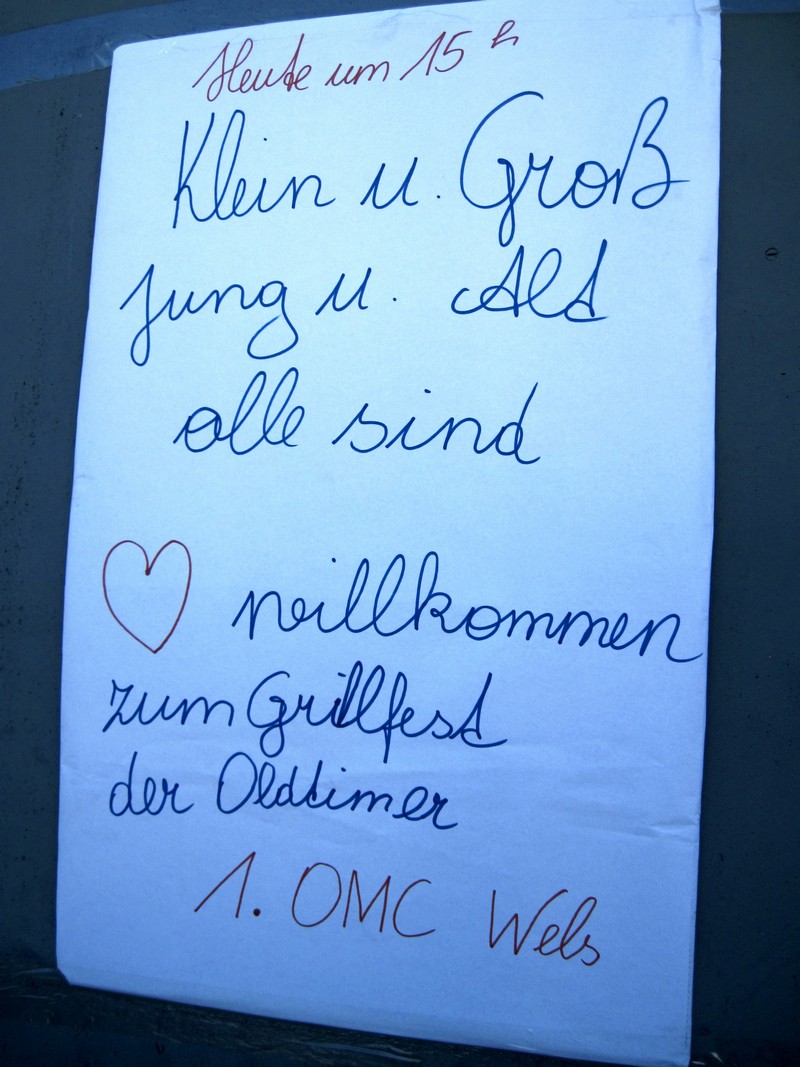 Heute um 15 h
Klein u. Groß
jung u. Alt
alle sind
♡ willkommen
zum Grillfest
der Oldtimer
1. OMC Wels